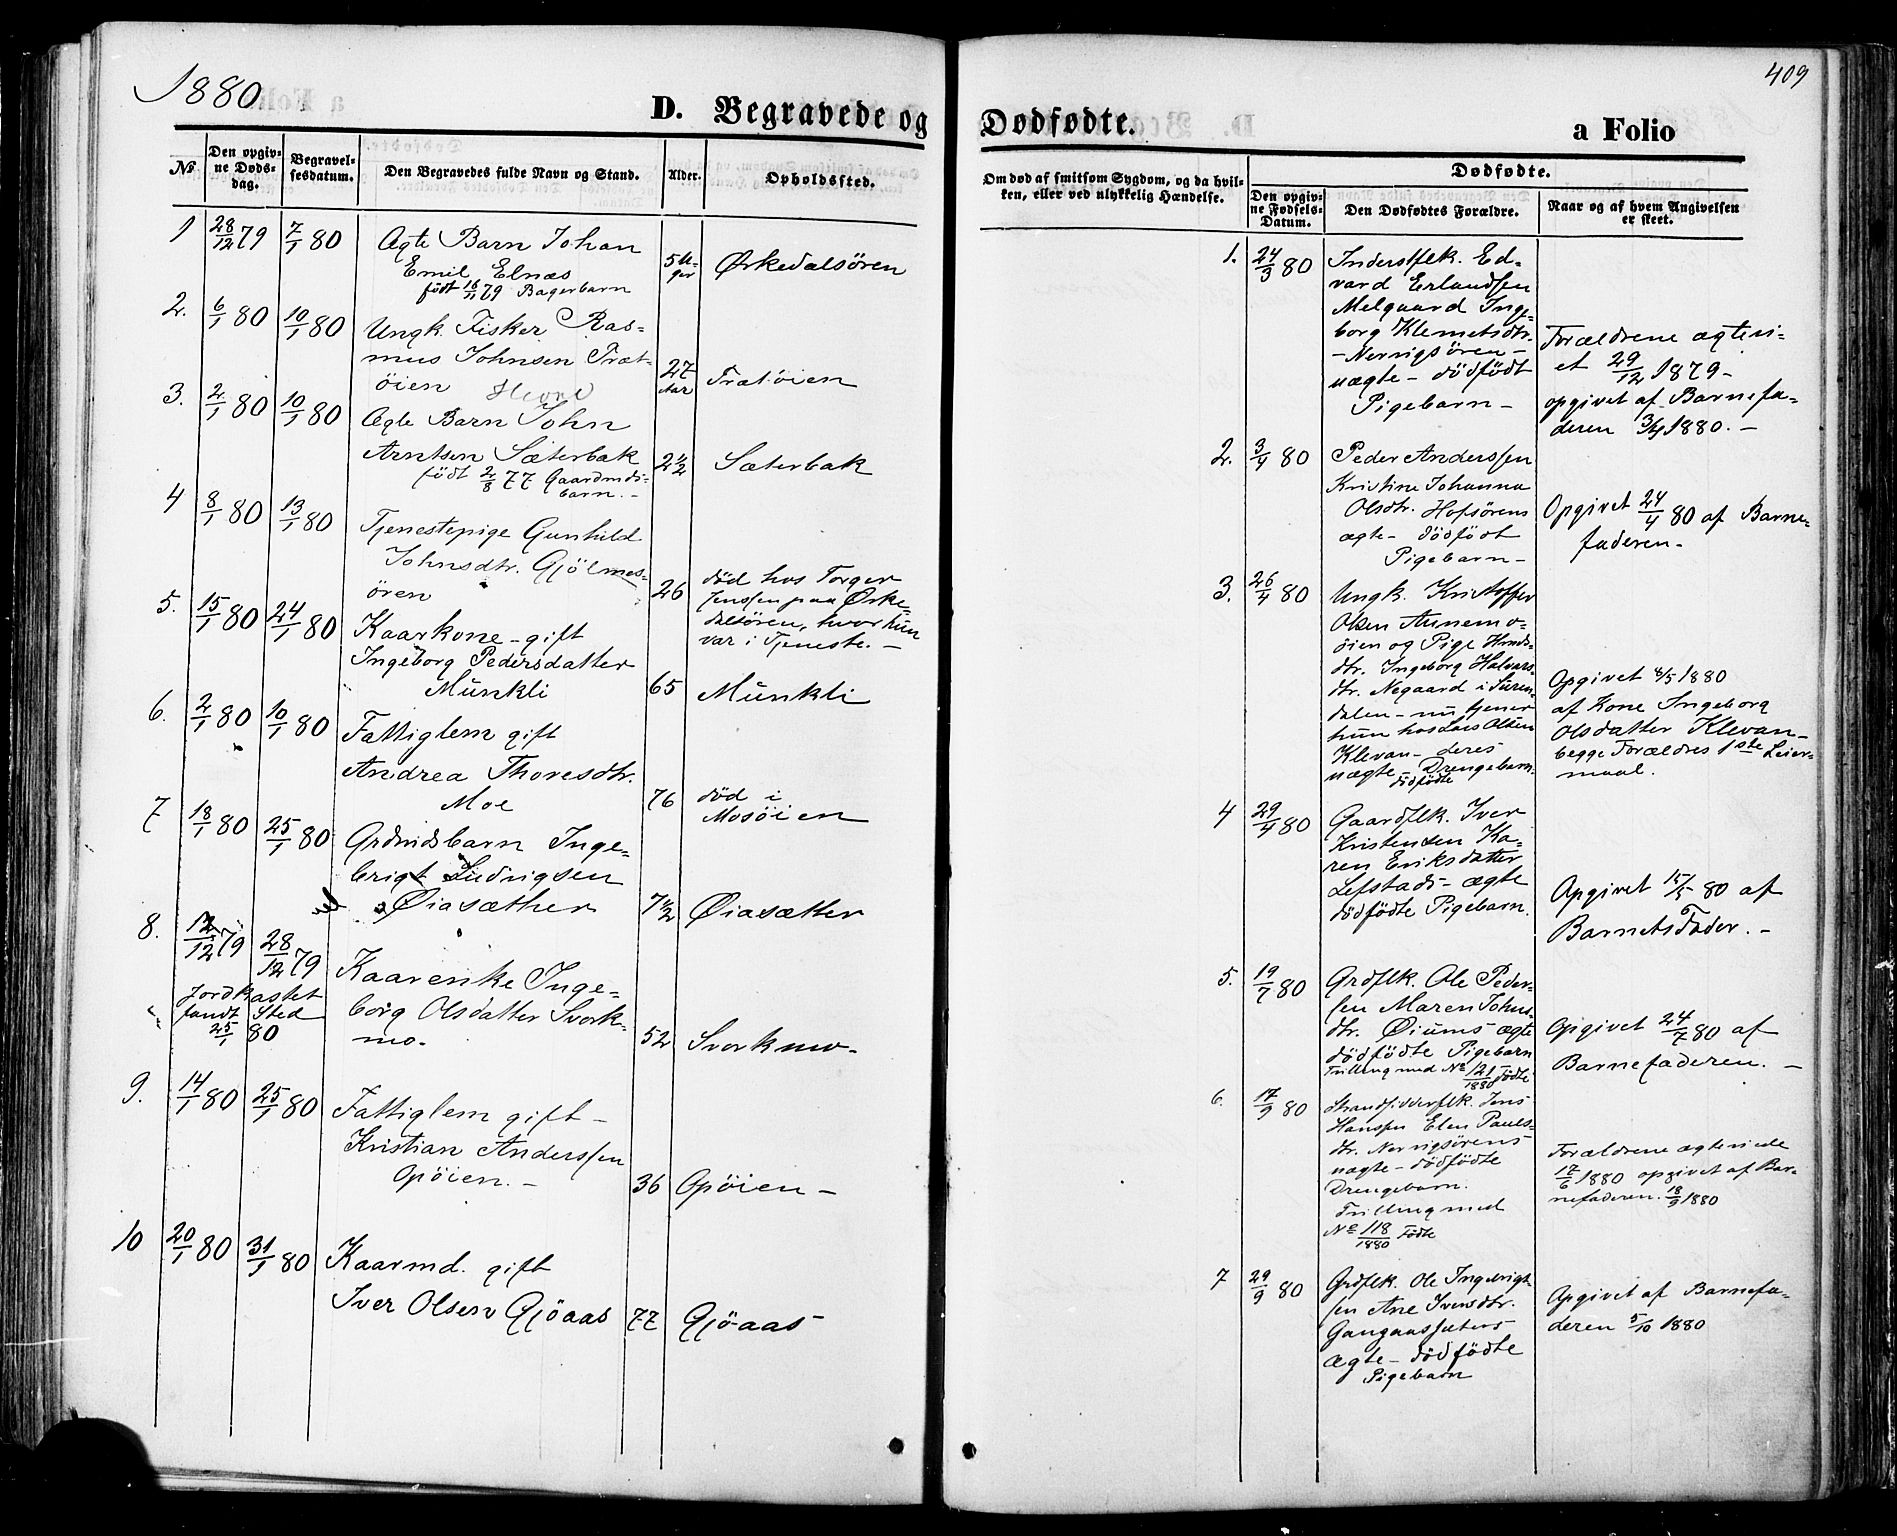 1880
D. Begravede og
No
Den opgiv-
ne Døds-
dag.
Begravel-
sesdatum.
Den Begravedes fulde Navn og Stand.
Alder.
Opholdssted.
1 28/12 79 7/1 80 Ægte Barn Johan
Emil Elnæs
födt 16/11 79 Bagerbarn
5 U-
ger
Ørkedalsören
2. 6/1 80 10/1 80 Ungk. Fisker Ras-
mus Johnsen Træt-
öien
27
Aar
Trætöien
3. 2/1 80 10/1 80 Ægte Barn John
Arntsen Sæterbak
födt 2/8 77 Gaardmds-
barn.-
2 1/2 Sæterbak
4 8/1 80 13/1 80 Tjenestepige Gunhild
Johnsdtr. Gjölmes-
ören
26 död hos Torger
Jenssen paa Ørke-
dalsören, hvor hun
var i Tjeneste.-
5. 15/1 80 24/1 80 Kaarkone - gift
Ingeborg Pedersdatter
Munkli
65 Munkli
6. 2/1 80 10/1 80 Fattiglem gift
Andrea Thoresdtr.
Moe
76 död i
Mosöien
7 18/1 80 25/1 80 Grdmdsbarn Inge-
brigt Ludvigsen
Øiasæther
7 1/2 Øiasætter
8. 12/12 79 28/12 79
Jordkastet
fandt Sted
25/1 80
Kaarenke Inge-
borg Olsdatter Svork-
mo.
52 Svorkmo.
9. 14/1 80 25/1 80 Fattiglem gift -
Kristian Anderssen
Opöien.-
36 Opöien -
10 20/1 80 31/1 80 Kaarmd. gift
Iver Olsen Gjöaas 77 Gjöaas
409
Dødfødte.
a Folio
Om død af smitsom Sygdom, og da hvil-
ken, eller ved ulykkelig Hændelse.
Dødfødte.
Den opgiv-
ne Fødsels-
Datum.
Den Dødfødtes Forældre.
Naar og af hvem Angivelsen
er skeet.
1. 24/3 80 Inderstflk. Ed-
vard Erlandsen
Melgaard Inge-
borg Klemetsdtr.
- Nervigsören -
uægte - dödfödt
Pigebarn -
Forældrene ægtevi-
et 29/12 1879 -
opgivet af Barnefa-
deren 3/4 1880.-
2. 3/4 80 Peder Anderssen
Kristine Johanna
Olsdtr. Hofsörens
ægte - dödfödt
Pigebarn -
Opgivet 24/4 80 af Barne-
faderen.
3. 26/4 80 Ungk. Kristoffer
Olsen Annemo-
öien og Pige
dtr. Ingeborg Halvors-
dtr. Negaard i Suren-
dalen - nu tjener
hun hos Lars Olsen
Klevan - deres
uægte Drengebarn
dödfödte
Opgivet 4/5 1880
af Kone Ingeborg
Olsdatter Klevan -
begge Forældres 1ste Leier-
maal.
4 29/4 80 Gaardflk. Iver
Kristensen Ka-
ren Eriksdatter
Lefstads - ægte
dödfödte Pigebarn.
Opgivet 15/5 80 af
Barnets Fader.-
5. 19/7 80 Grdflk. Ole Peder-
sen Maren Johns-
dtr. Øiums ægte
dödfödte Pigebarn
Trilling med No 121/1880 Födte
Opgivet 24/7 80 af
Barnefaderen.-
6. 17/9 80 Strandsidderflk. Jens
Hanssen Elen Pauls-
dtr. Nervigsörens
uægte - dödfödte
Drengebarn.
Trilling med
No 118/1880 Födte
Forældrene ægteviede
17/6 1880 opgivet af Bar-
nefaderen. 18/9 1880
7 29/9 80 Grdflk. Ole Ingebrigt-
sen Ane Iversdtr.
Gangaassæters
ægte - dödfödte
Pigebarn
Opgivet af Barnefa-
deren 5/10 1880